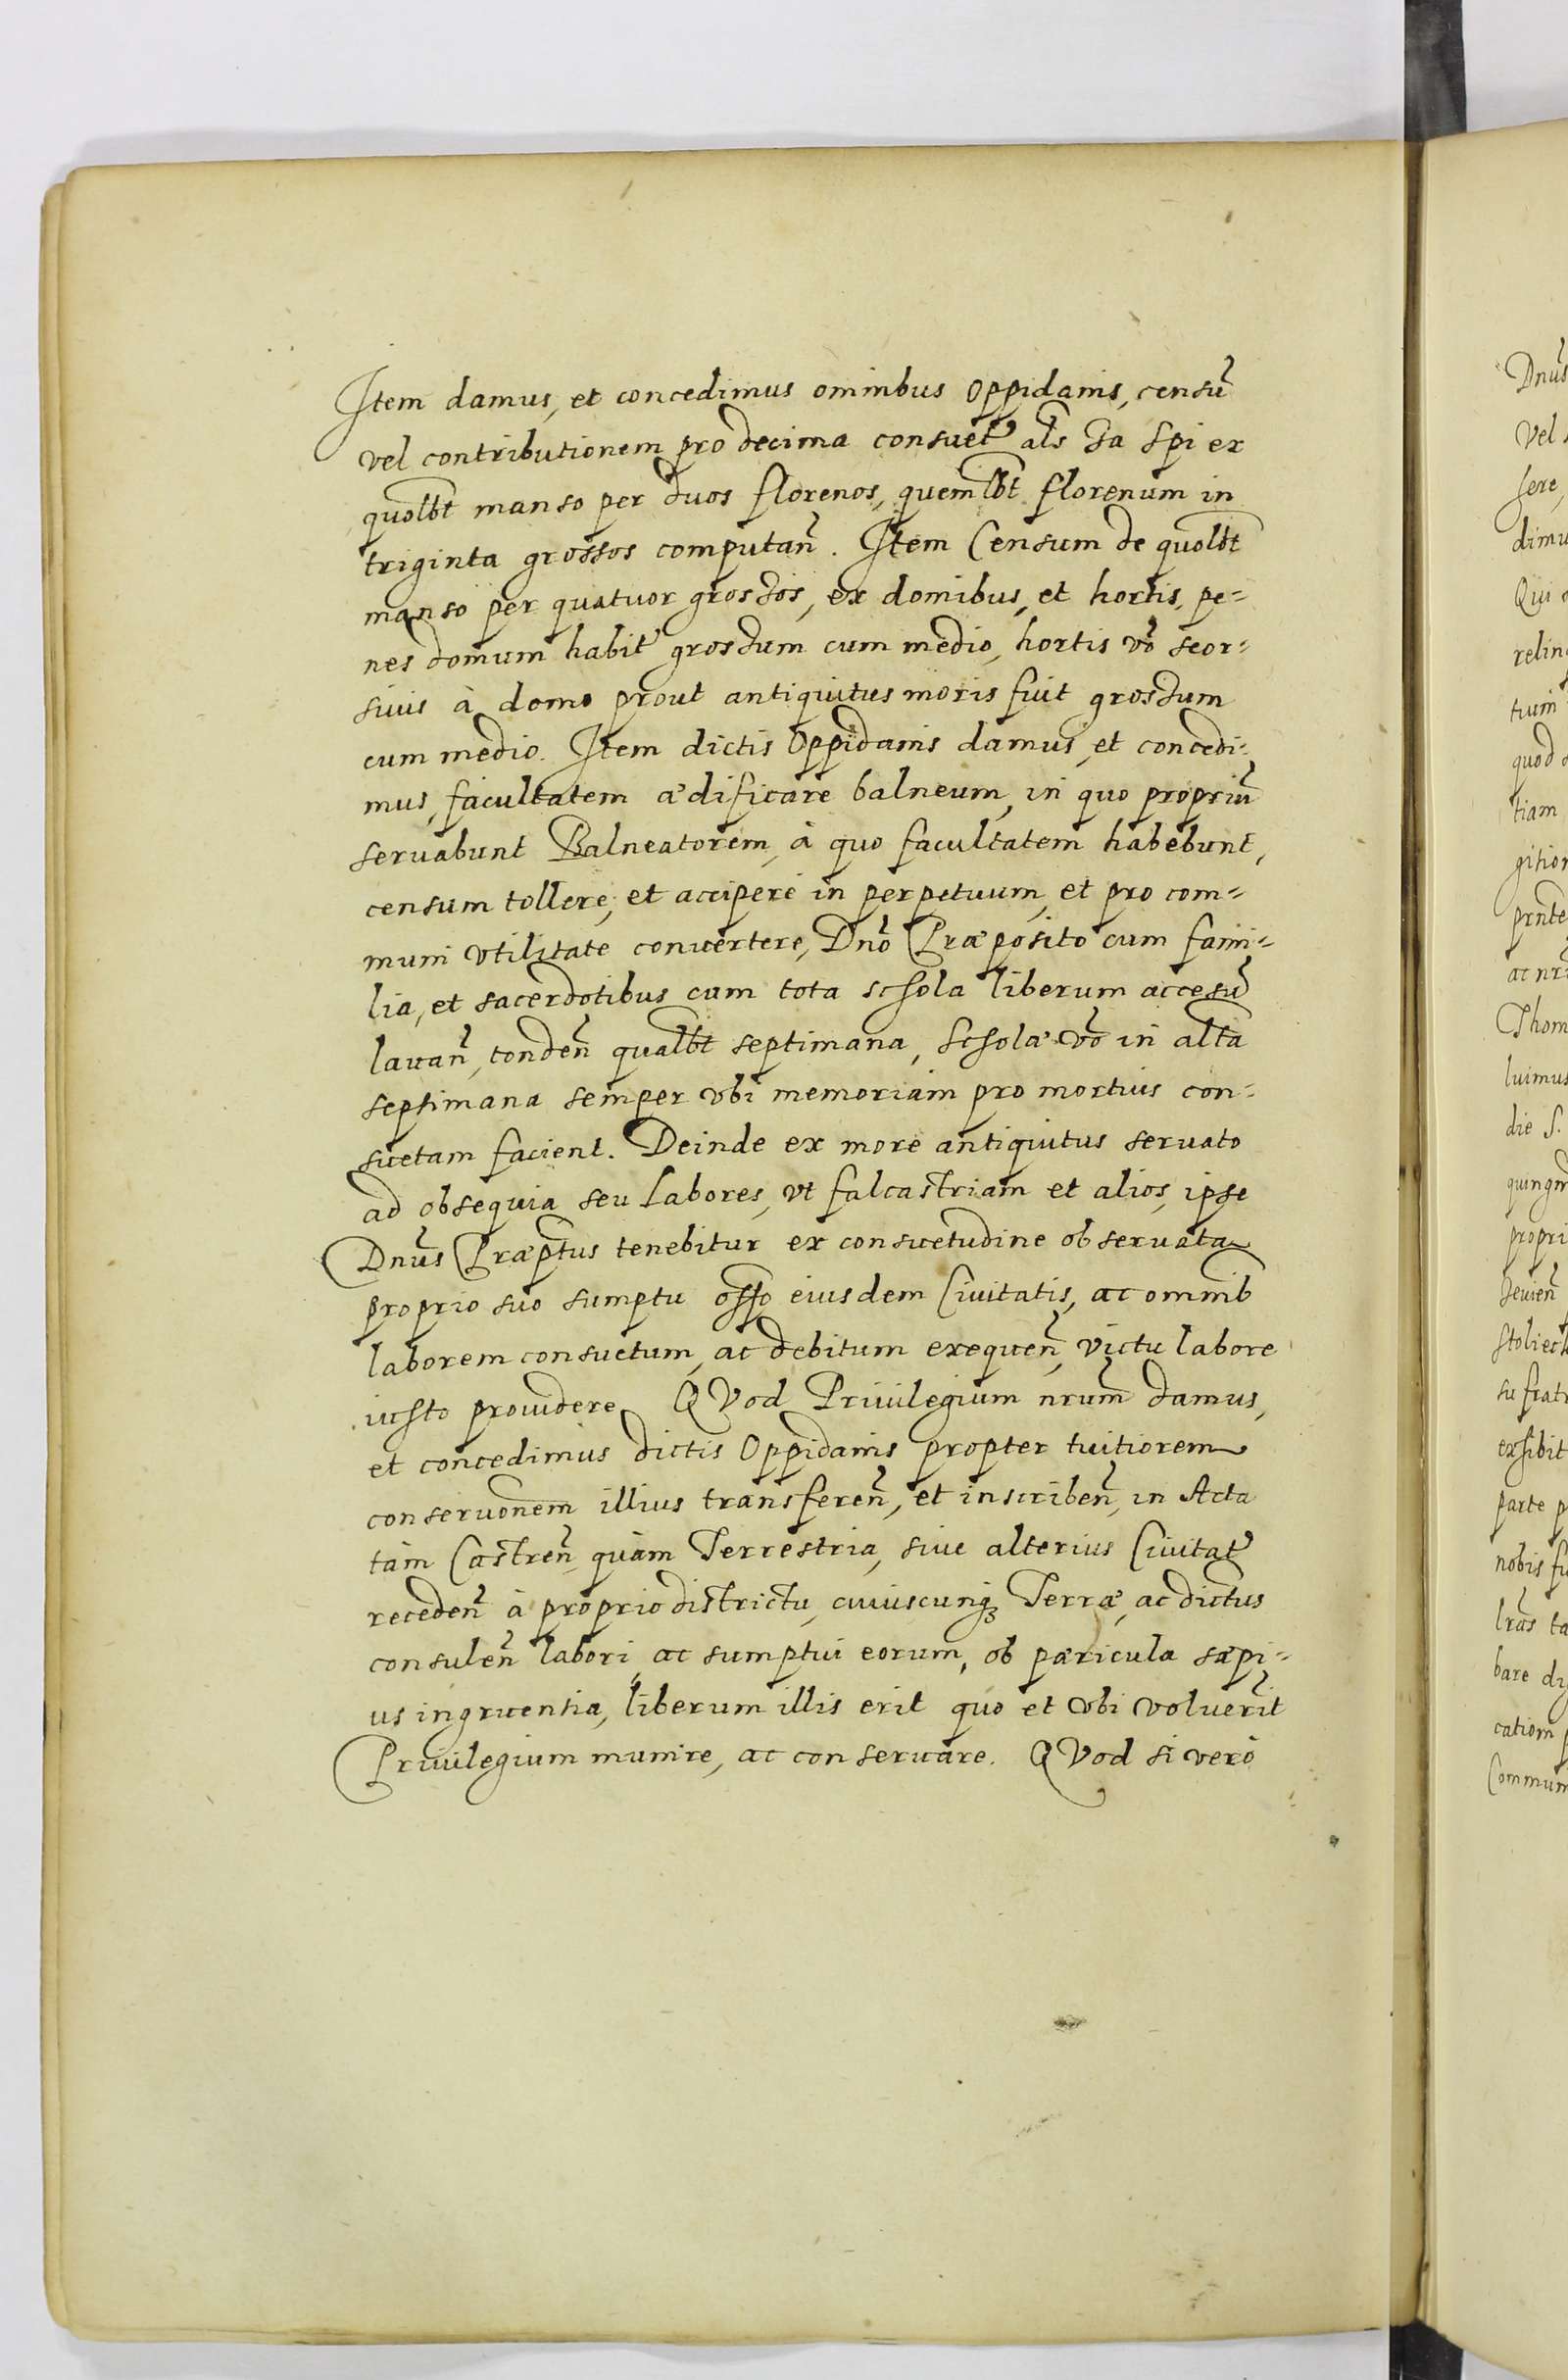 Item damus, et concedimus omnibus Oppidanis, censũ
vel contributionem pro decima consuet̃ als Za Spi ex
quolbt manso per duos florenos, quemlbt florenum in
triginta grossos computañ. Item Censum de quolbt
manso per quatuor grossos, ex domibus, et hortis, pe-
nes domum habit̃ grossum cum medio, hortis vo seor-
siuis à domo prout antiquitus moris fuit grossum
cum medio. Item dictis Oppidanis damus, et concedi-
mus, facultatem ædificare balneum, in quo propriũ
seruabunt Balneatorem, à quo facultatem habebunt,
censum tollere, et accipere in perpetuum, et pro com-
muni vtilitate conuertere, Dno Præposito cum fami-
lia, et sacerdotibus cum tota schola liberum accesũ
lauañ, tondeñ qualbt septimana, scholæ vo in alta
septimana semper vbi memoriam pro mortuis con-
suetam facient. Deinde ex more antiquitus seruato
ad obsequia seu Labores, vt falcastriam et alios, ipse
Dnus Præptus tenebitur ex consuetudine obseruata
proprio suo sumptu offo eiusdem Ciuitatis, ac omnib
laborem consuetum, ac debitum exequeñ, victu labore
iusto prouidere QVod Priuilegium nrum damus,
et concedimus dictis Oppidanis propter tuitiorem
conseruonem illius transfereñ, et inscribeñ, in Acta
tàm Castreñ quàm Terrestria, siue alterius Ciuitat̃
recedeñ à proprio districtu, cuiuscunq Terræ, ac dictus
consuleñ labori, ac sumptui eorum, ob pæricula sæpi-
us ingruentia, liberum illis erit quo et vbi voluerit
Priuilegium munire, ac conseruare. QVod si verò
Dnus
Vel
dimu
Qui
relin
tium
quod
tiam
gition
prnte
ac nr
Thom
luimus
die S.
propri
su frat
exhibit
parte p
nobis fu
lras ta
bare di
cation p
Commun